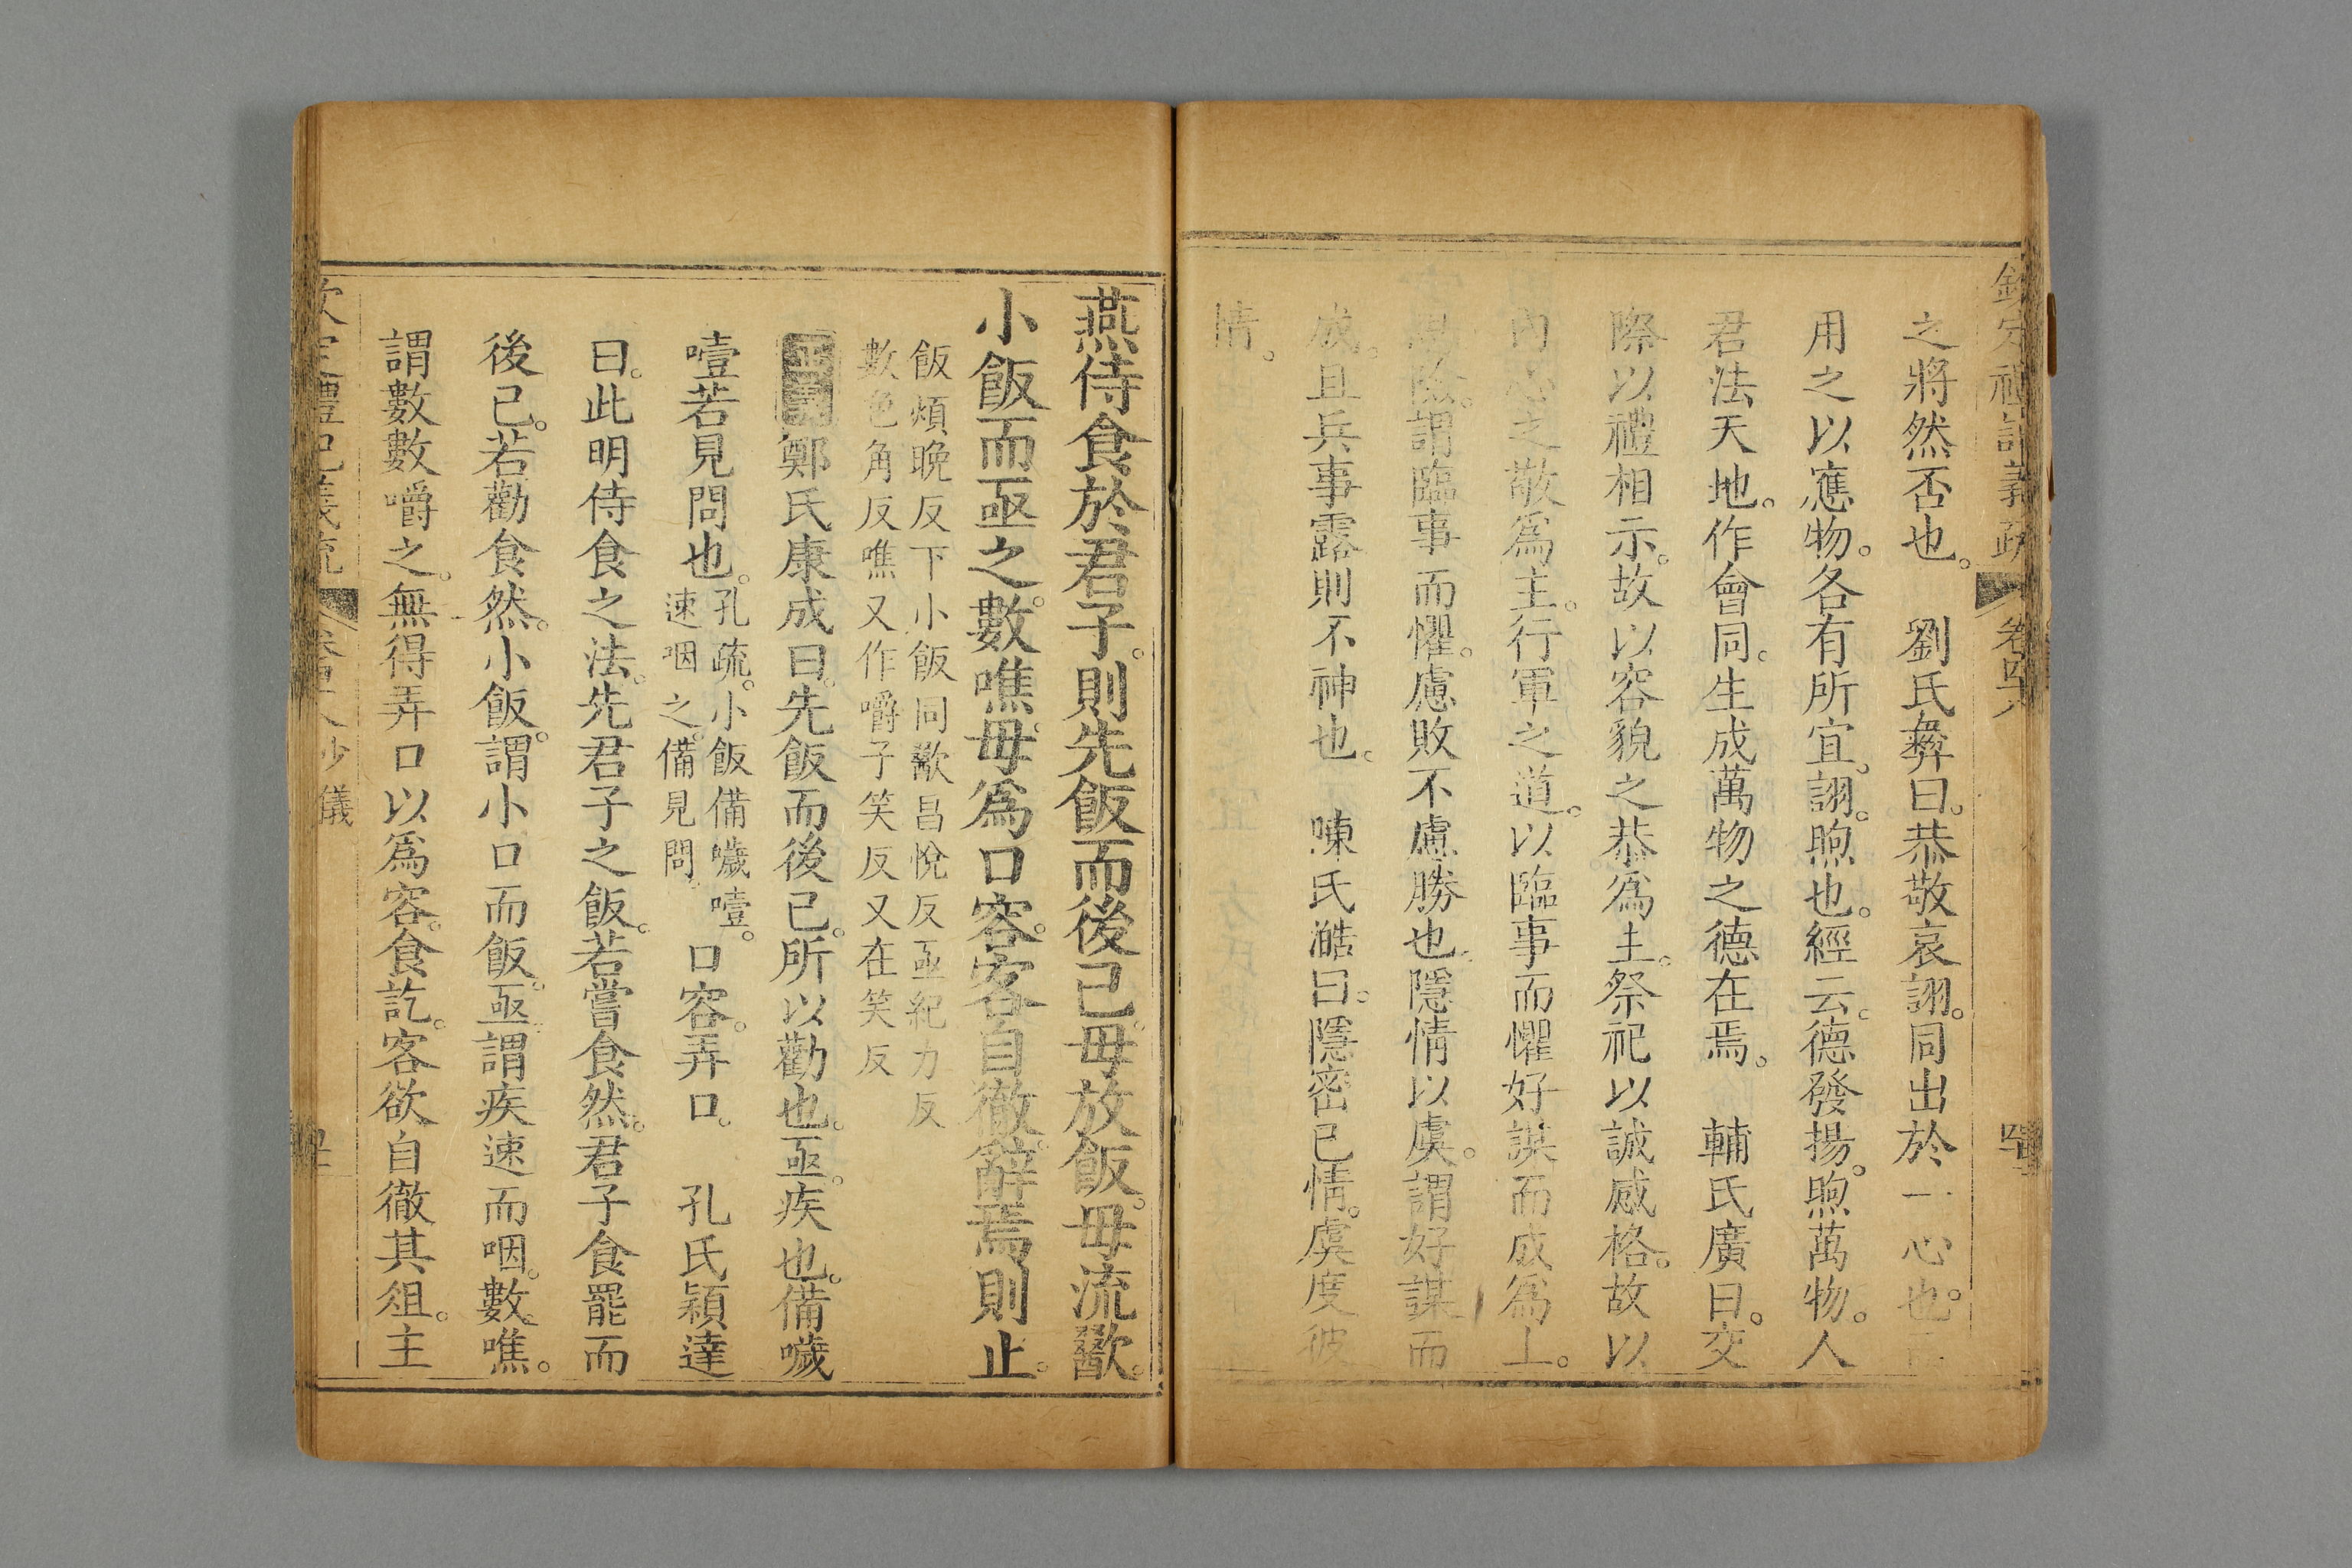 欽定禮記義疏 卷四十八
之將然否也。 劉氏彝曰。恭敬哀詡。同出於一心也。而
用之以應物。各有所宜。詡。煦也。經云。德發揚。煦萬物。人
君法天地。作會同。生成萬物之德在焉。 輔氏廣曰。交
際以禮相示。故以容貌之恭爲主。祭祀以誠感格。故以
內心之敬爲主。行軍之道。以臨事而懼好謀而成爲上。
思險。謂臨事而懼。慮敗不慮勝也。隱情以虞。謂好謀而
成。且兵事露則不神也。 陳氏澔曰。隱密已情。虞度彼
情。
燕侍食於君子。則先飯而後已。毋放飯。毋流歠。
小飯而亟之。數噍。毋爲口容。客自徹。辭焉則止。
飯煩晚反下小飯同歠昌悅反亟紀力反
數色角反噍又作嚼子笑反又在笑反
正義 鄭氏康成曰。先飯而後已。所以勸也。亟。疾也。備噦
噎若見問也。孔疏。小飯備噦噎。速咽之。備見問。 口容。弄口。 孔氏穎達
曰。此明侍食之法。先君子之飯。若嘗食然。君子食罷而
後已。若勸食然。小飯。謂小口而飯。亟。謂疾速而咽。數噍。
謂數數嚼之。無得弄口以爲容。食訖。客欲自徹其俎。主
欽定禮記義疏 卷四十八 少儀